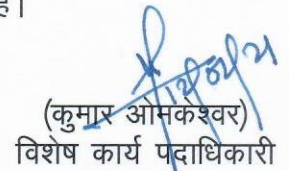 है।
(कुमार ओमकेश्वर)
विशेष कार्य पदाधिकारी